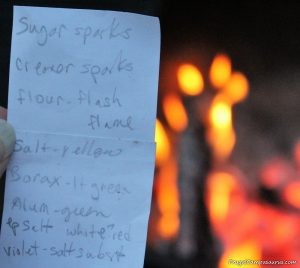 Sugar sparks
Creamer sparks
flour - flash
flame
Salt - yellow
Borax - lt green
Alum - green
ep Salt white/red
violet - salt subst